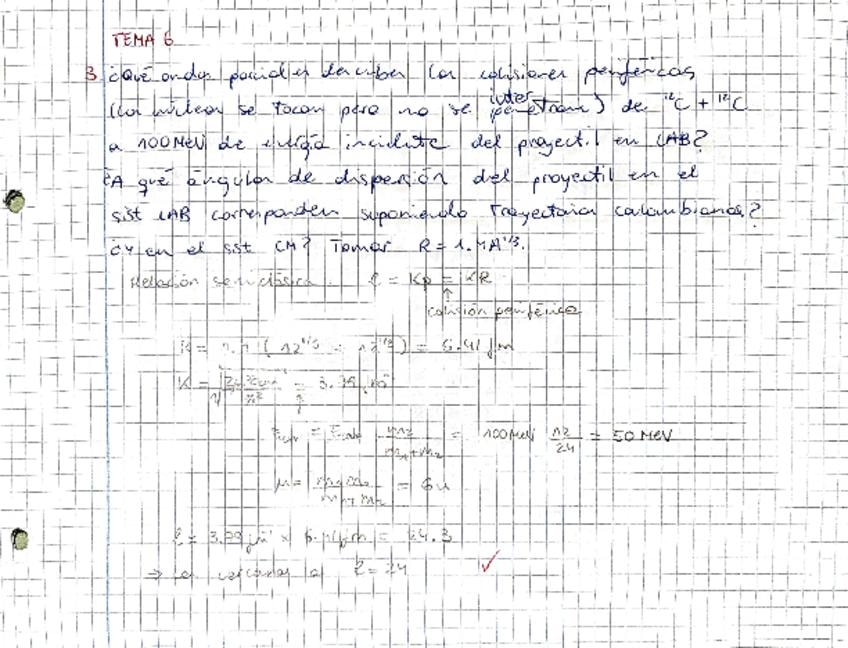 TEMA 6
3. ¿Qué ondas parciales describen las colisiones periféricas
(los núcleos se tocan pero no se interpenetran) de ¹²C + ¹²C
a 100 MeV de energía incidente del proyectil en LAB?
¿A qué ángulos de dispersión del proyectil en el
sist LAB corresponden suponiendo trayectorias coulombianas?
¿Y en el sist CM? Tomar R = 1.4A^1/3.
Relación semiclásica ℓ = Kρ = KR
↑
colisión periférica
(12^1/3 + 12^1/3) = 6.41 fm
K =
↑
= E_lab m2/(m1+m2) = 100 MeV 12/24 = 50 MeV
μ = m1m2/(m1+m2) = 6u
= 24.3
⇒ ℓ = 24 ✓